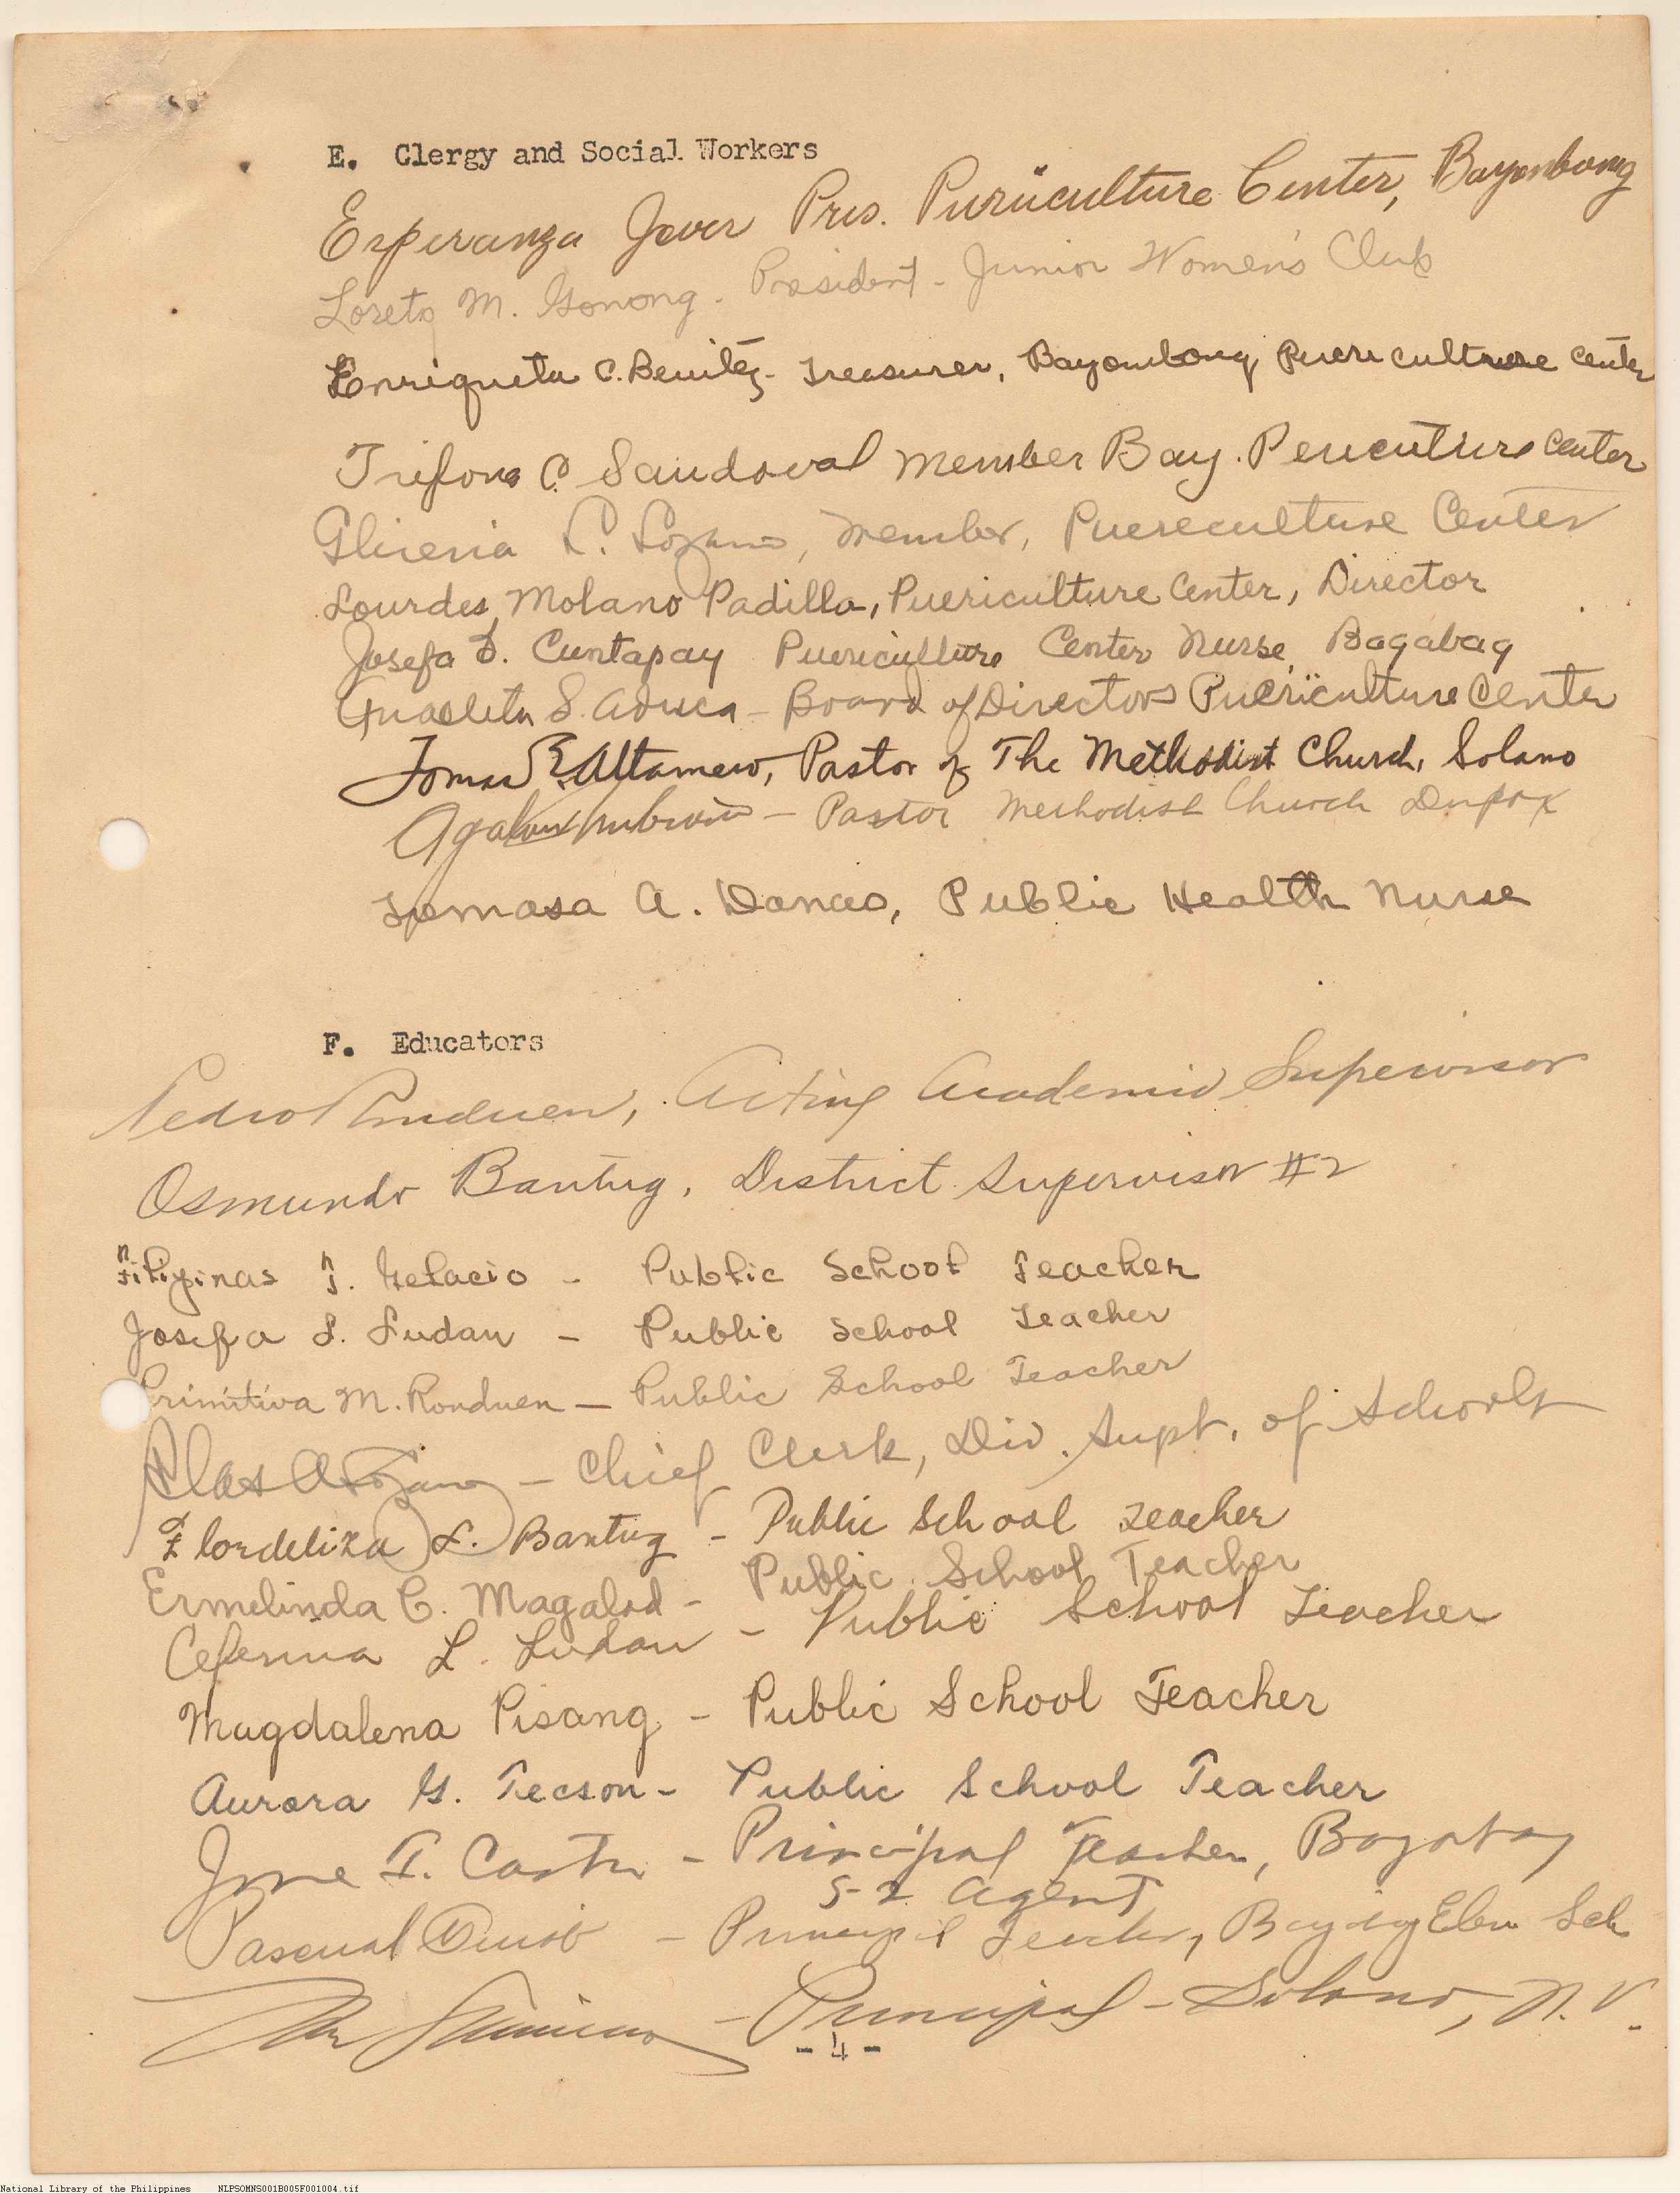 E. Clergy and Social Workers
Esperanza Jover Pres. Puriiculture Center, Bayombong
Loreto M. Gonong. President - Junior Women's Club
Enriqueta C. Benitez - Treasurer, Bayombong Puericulture Center
Trifona C. Sandoval Member Bay. Pericultire Center
Gliceria C. Lozano, Member, Puereculture Center
Lourdes Molano Padilla, Puericulture Center, Director
Josefa D. Cuntapay Puericulture Center Nurse, Bagabag
S. Aduca - Board of Directors Puericulture Center
Tomas Altamero, Pastor of The Methodist Church, Solano
- Pastor Methodist Church Dupax
Tomasa A. Danao, Public Health Nurse
F. Educators
Pedro Ronduen, Acting Academic Supervisor
Osmundo Bantug, District Supervisor #2
Filipinas T. Gelacio - Public School Teacher
Josefa L. Ludan - Public School Teacher
Primitiva M. Ronduen - Public School Teacher
Blas A. Lozano - Chief Clerk, Div. Supt. of Schools
Flordeliza L. Bantug - Public School Teacher
Ermelinda C. Magalad - Public School Teacher
Ceferina L. Ludan - Public School Teacher
Magdalena Pisang - Public School Teacher
Aurora G. Tecson - Public School Teacher
T. Castro - Principal Teacher, Bagabag
S-2 Agent
Pascual - Principal Teacher, Elem Sch
- Principal - Solano, N.V.
- 4 -
National Library of the Philippines NLPSOMNS001B005F001004.tif